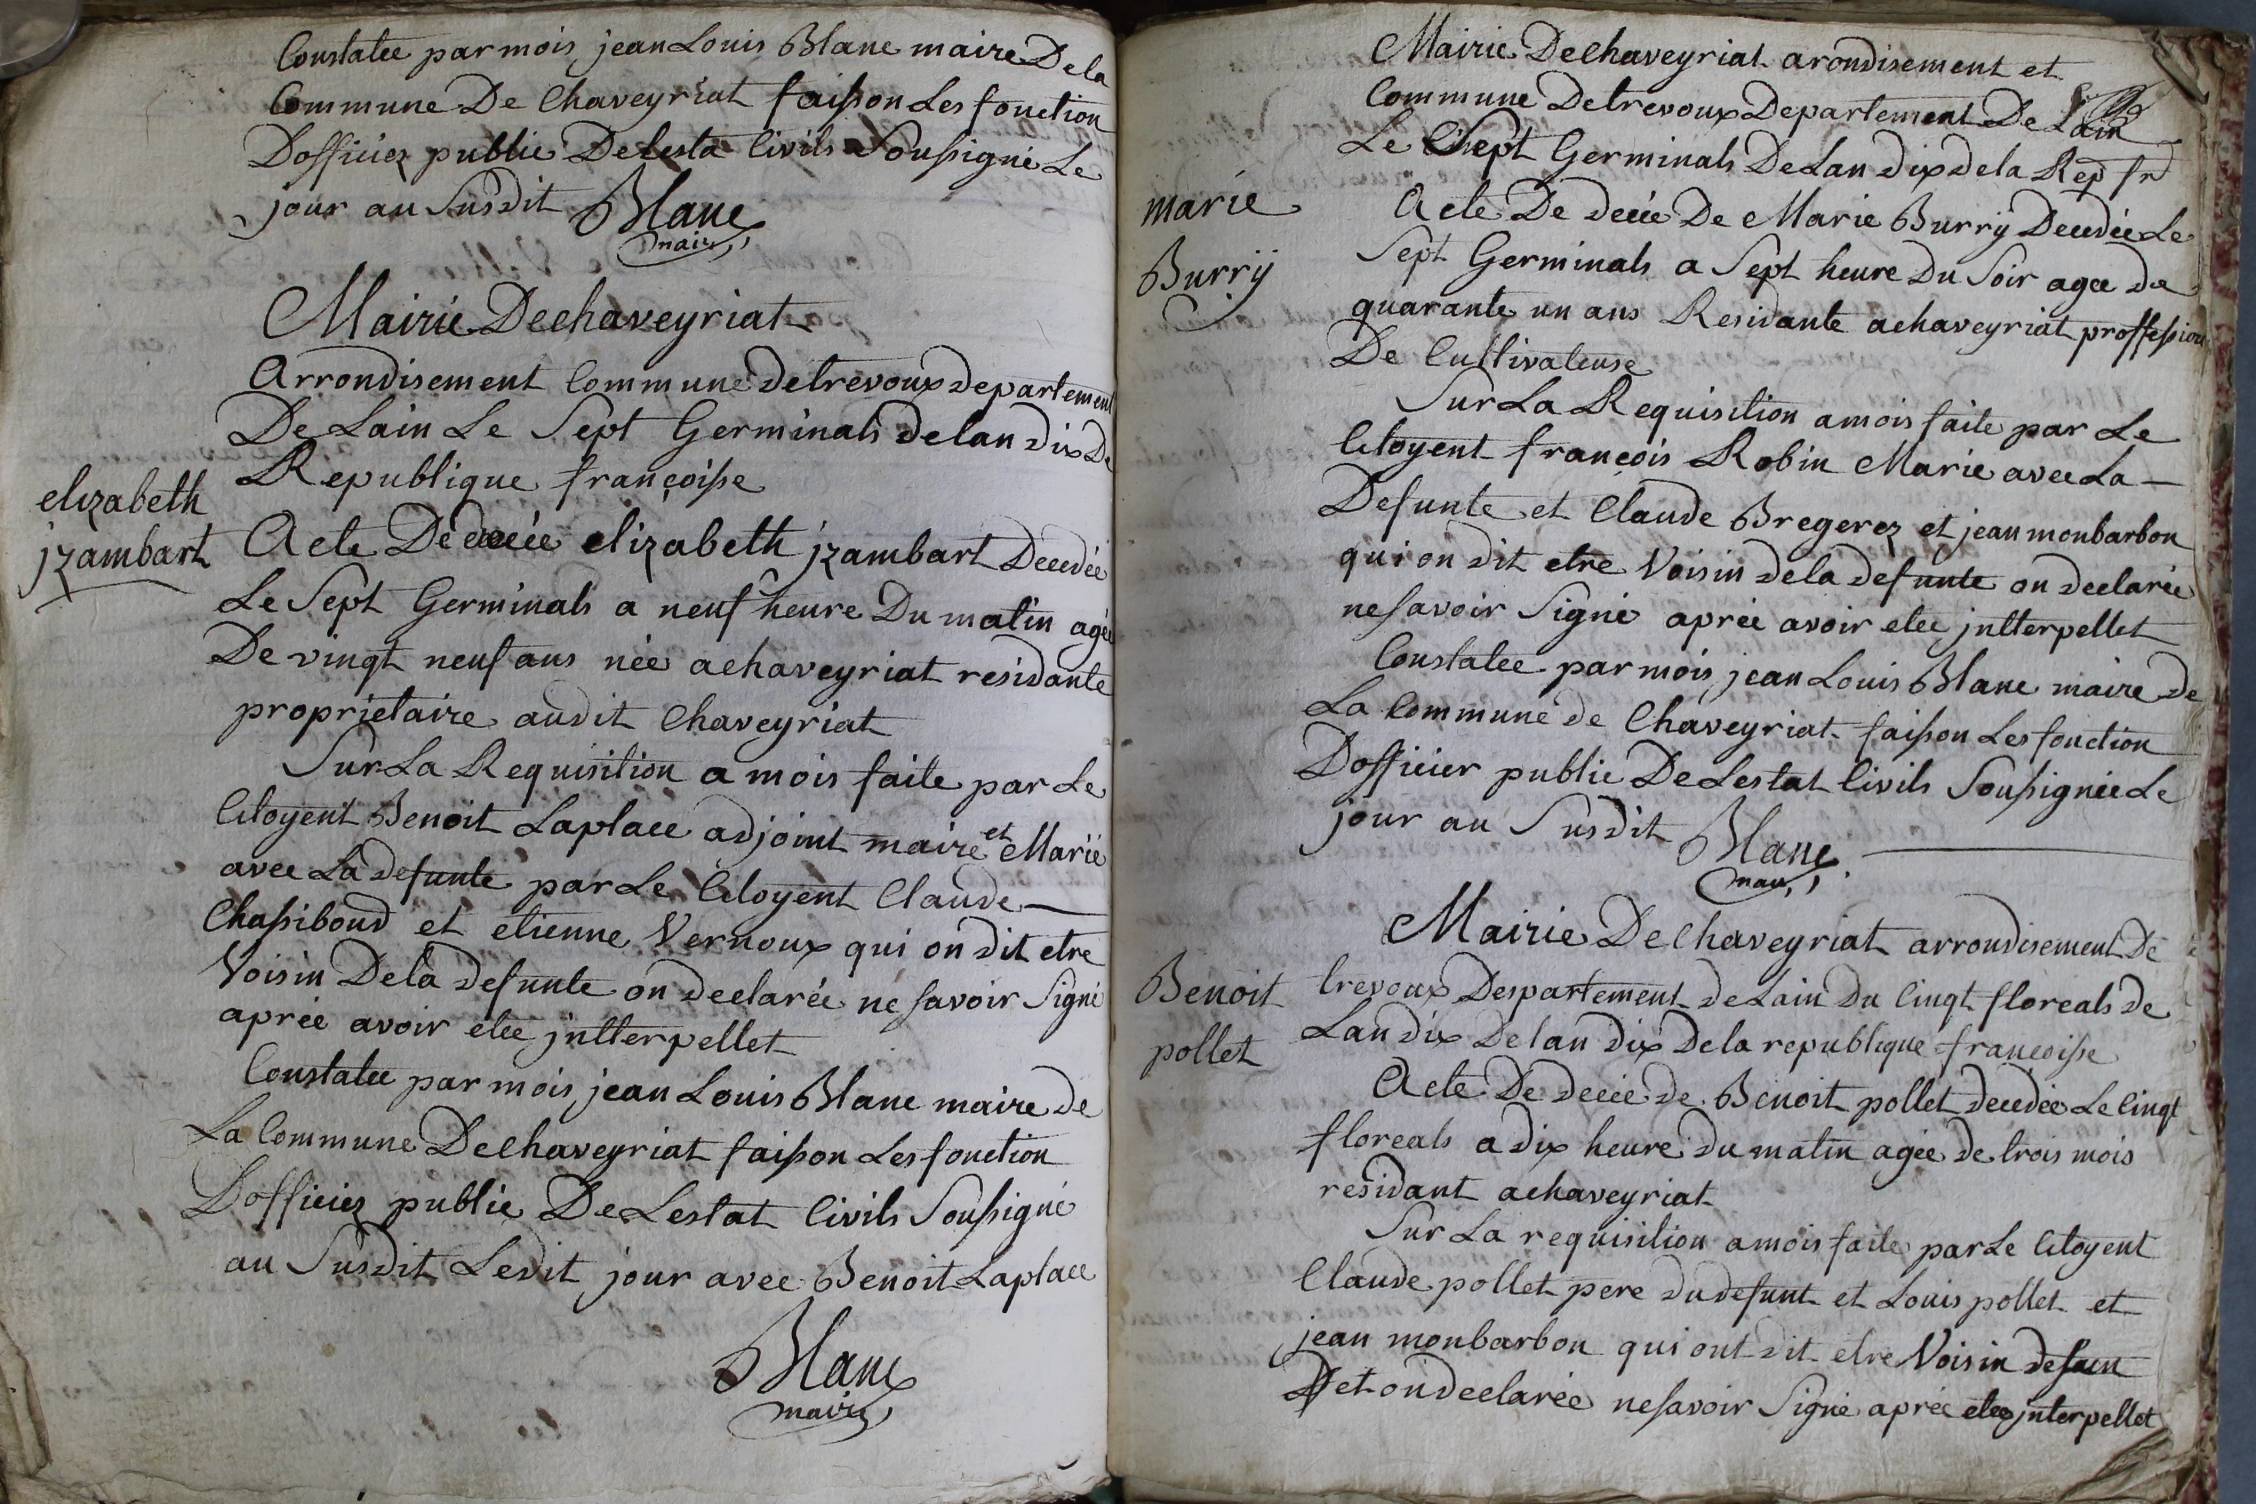 Constatee par mois jean Louis Blanc maire De la
Commune De Chaveyriat faisson Les fonction
Dofficiez public De lesta Civils Soussigné Le
jour au Susdit Blanc
maire
Mairie De chaveyriat
Arrondisement Commune de trevoux departement
De Lain Le Sept Germinals de lan dix De
Republique françoisse
elizabeth
jzambart
Acte De decée elizabeth jzambart Decedée
Le Sept Germinals a neuf heure Du matin agée
De vingt neuf ans née a chaveyriat residante
proprietaire audit Chaveyriat
Sur La Requisition a mois faite par Le
Citoyent Benoit Laplace adjoint maire et Marié
avec La defunte par Le Citoyent Claude
Chassiboud et etienne Vernoux qui on dit etre
Voisin De la defunte on declarée ne savoir Signé
aprée avoir etée jntterpellet
Constatee par mois jean Louis Blanc maire de
La Commune De chaveyriat faisson Les fonction
Dofficiez public De Lestat Civils Soussigné
au Susdit Ledit jour avec Benoit Laplace
Blanc
maire
Mairie De chaveyriat arondisement et
Commune De trevoux Departement De Lain
Le Sept Germinals De Lan dix de la Rep fr
marie
Burrÿ
Acte De decée De Marie Burrÿ Decedée Le
Sept Germinals a Sept heure Du Soir agee de
quarante un ans Residante a chaveyriat proffession
De Cultivateuse
Sur La Requisition a mois faite par Le
Citoyent françois Robin Marie avec La
Defunte et Claude Bregerez et jean monbarbon
qui on dit etre Voisin de la defunte on declarée
ne savoir Signé aprée avoir etée jntterpellet
Constatee par mois jean Louis Blanc maire de
La Commune de Chaveyriat faisson Les fonction
Dofficier public De Lestat Civils Soussignée Le
jour au Susdit Blanc
maire
Mairie De chaveyriat arrondisement De
Benoit
pollet
trevoux Despartement de Lain Du Cinqt floreals de
Lan dix De lan dix De la republique françoisse
Acte De decée de Benoit pollet decedée Le Cinqt
floreals a dix heure du matin agée de trois mois
residant a chaveyriat
Sur La requisition a mois faite par Le Citoyent
Claude pollet pere du defunt et Louis pollet et
jean monbarbon qui ont dit etre Voisin defun
et on declarée ne savoir Signé aprée etée jnterpellet